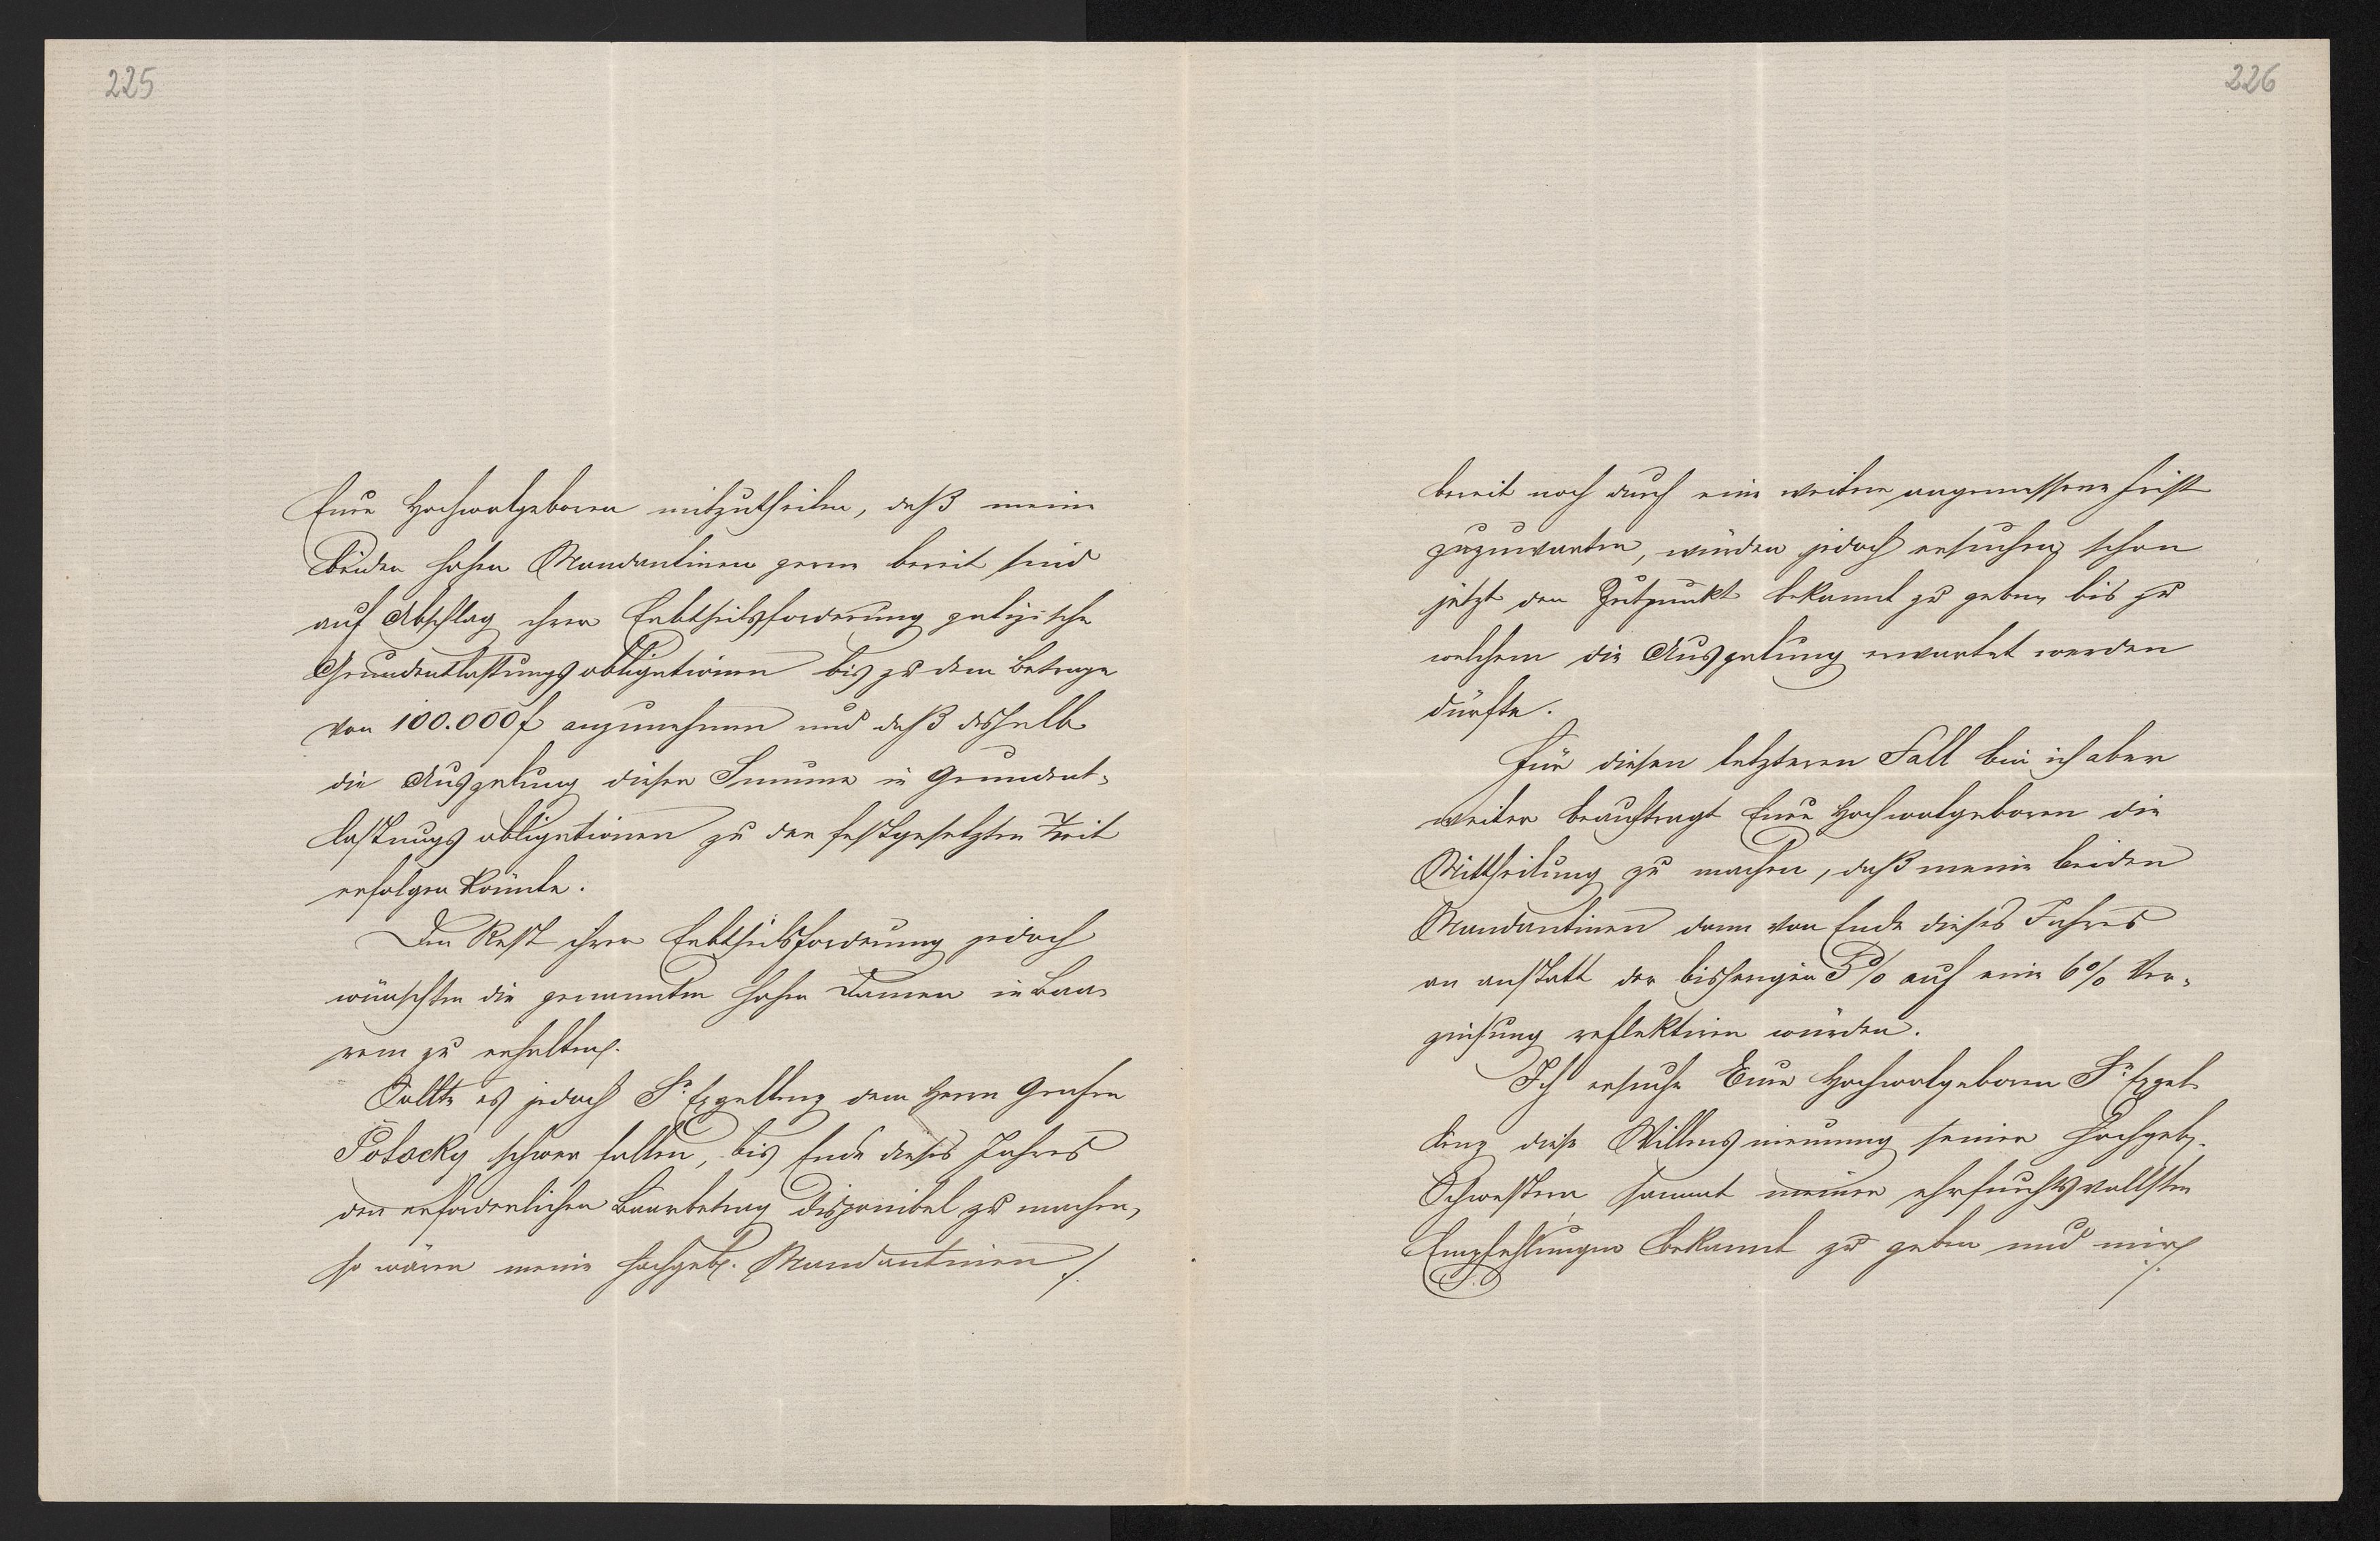 225
Eure Hochwolgeboren mitzutheilen, daß meine
beiden hohen Mandantinen gerne bereit sind
auf Abschlag ihrer Erbtheilsforderung galizische
Grundentlastungsobligationen bis zu dem Betrage
von 100.000 f anzunehmen und daß deshalb
die Ausgalung dieser Summe in Grundent-
lastungsobligationen zu der festgesetzten Zeit
erfolgen könnte.
Den Rest ihrer Erbtheilsforderung jedoch
wünschten die genannten hohen Damen in Baa-
rem zu erhalten.
Sollte es jedoch Sr Exzellenz dem Herrn Grafen
Potocky schwer fallen, bis Ende dieses Jahres
den erforderlichen Baarbetrag disponibel zu machen,
so wären meine hochgeb. Mandantinen ./.
226
bereit noch durch eine weitere angemessene Frist
zuzuwarten, würden jedoch ersuchen schon
jetzt den Zeitpunkt bekannt zu geben bis zu
welchem die Ausgalung erwartet werden
dürfte.
Für diesen letzteren Fall bin ich aber
weiter beauftragt Eure Hochwolgeboren die
Mittheilung zu machen, daß meine beiden
Mandantinen dann von Ende dieses Jahres
an anstatt der bisherigen 5% auf eine 6% Ver-
zinsung reflektiren würden.
Ich ersuche Eure Hochwolgeboren Sr Exzel-
lenz diese Willensmeinung seiner hochgeb.
Schwestern sammt meinen ehrfurchtsvollsten
Empfehlungen bekannt zu geben und mich
./.